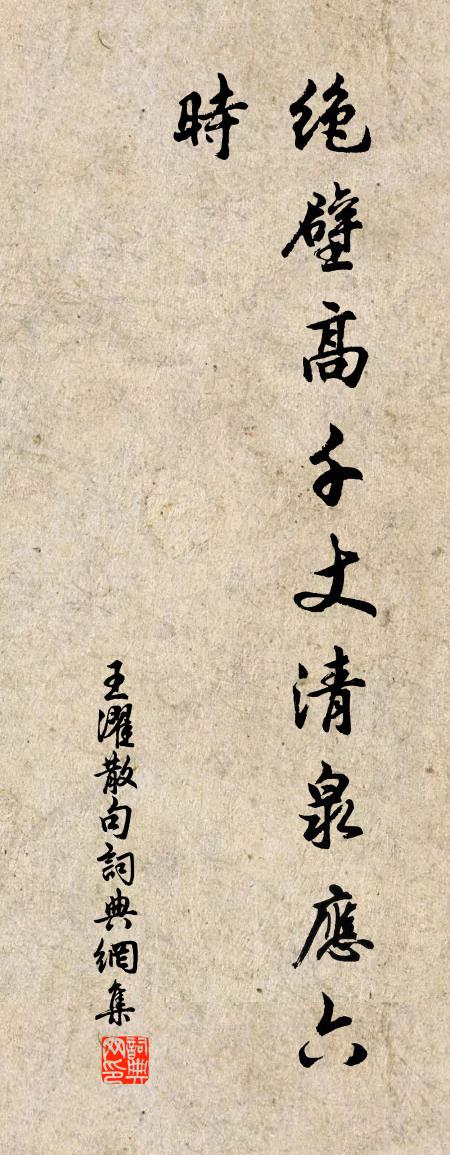 绝壁高千丈清泉應六
時
王濯散句詞典網集
詞典网印